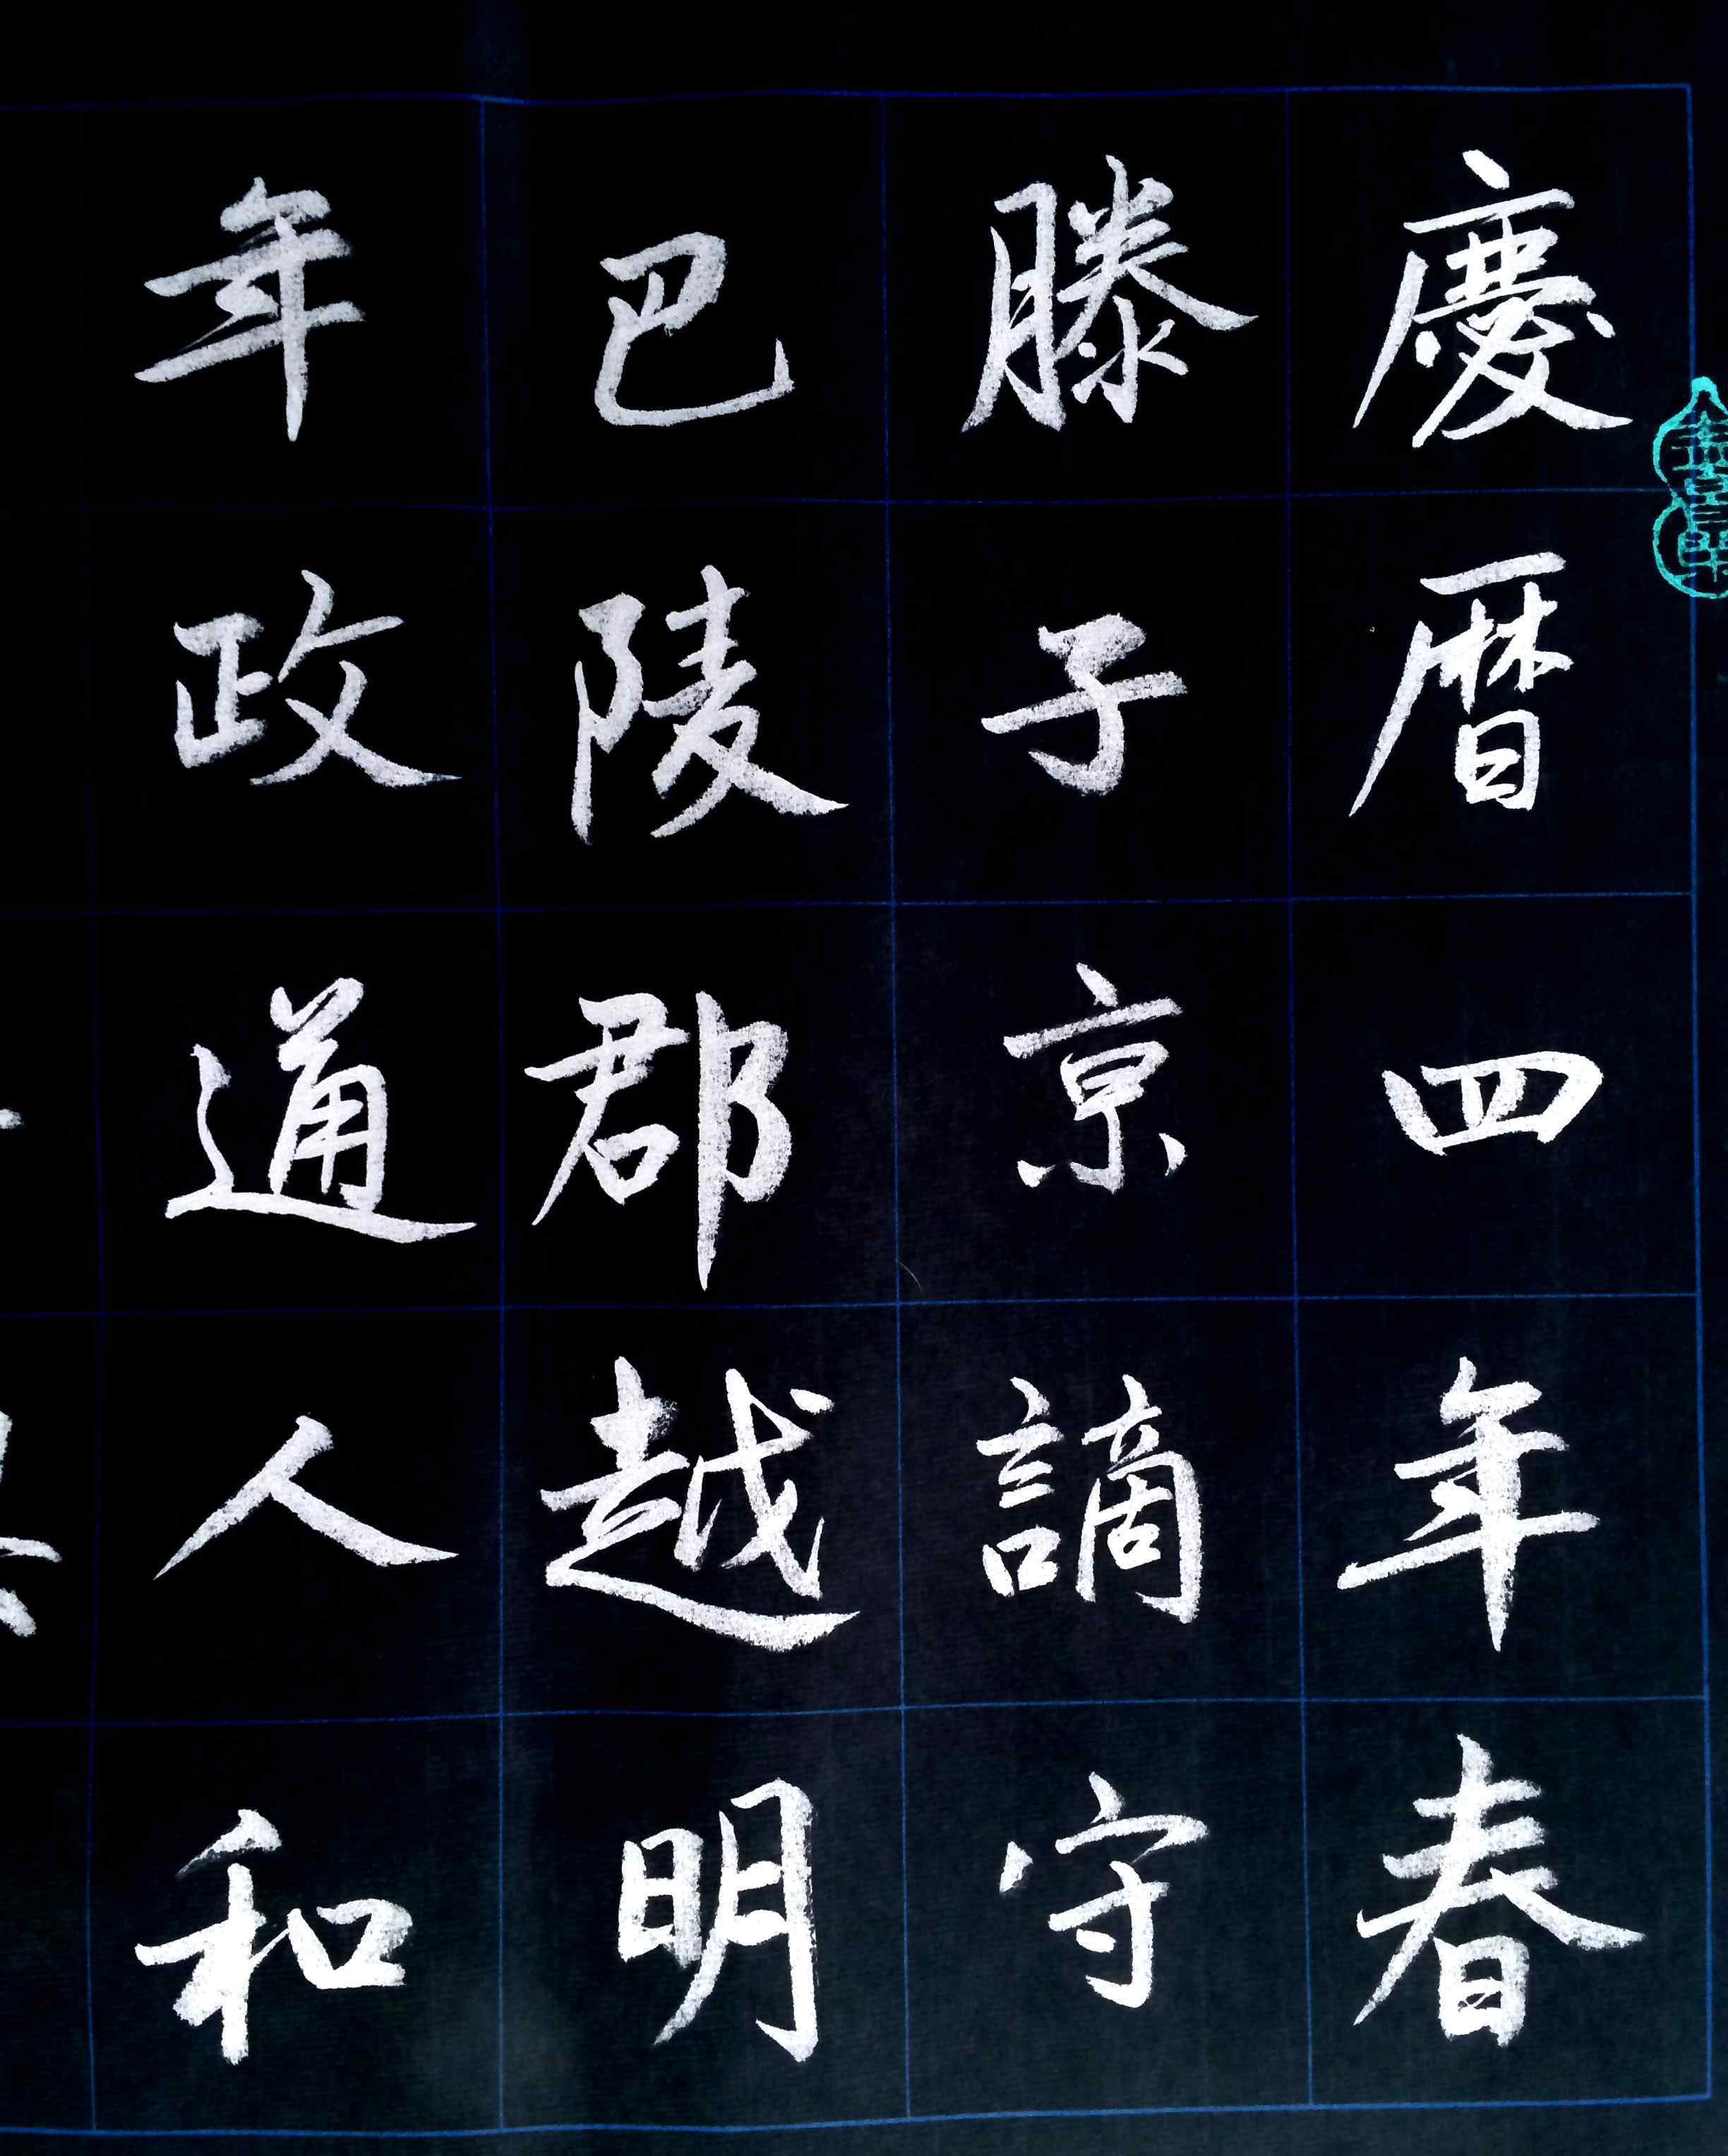 慶暦四年春
滕子京謫守
巴陵郡越明
年政通人和